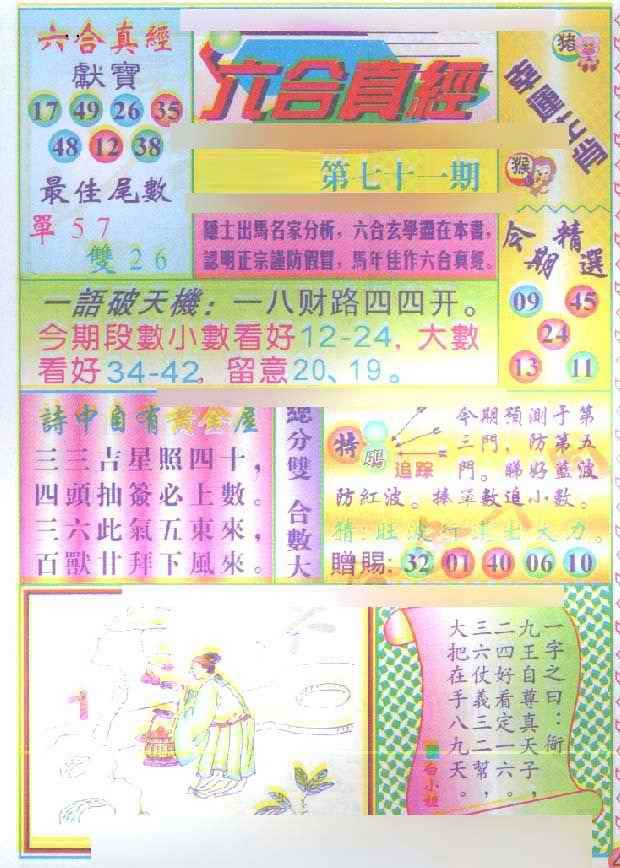 六合真經
獻寶
17 49 26 35
48 12 38
最佳尾數
單 5 7
雙 2 6
六合真經
第七十一期
隱士出馬名家分析，六合玄學盡在本書，
認明正宗謹防假冒，馬年佳作六合真經。
豬
猴
今期精選
09 45
24
13 11
一語破天機：一八财路四四开。
今期段數小數看好12-24，大數
看好34-42，留意20、19。
詩中自有黃金屋
三三吉星照四十，
四頭抽簽必上數。
三六此氣五東來，
百獸廿拜下風來。
總分雙 合數大
特碼
追踪
今期預測于第
三門，防第五
門。睇好藍波
防紅波。捧單數追小數。
贈賜：32 01 40 06 10
一字之曰：銜
九王自尊真天子，
二四好看定一六。
三六仗義三二幫，
大把在手八九天。